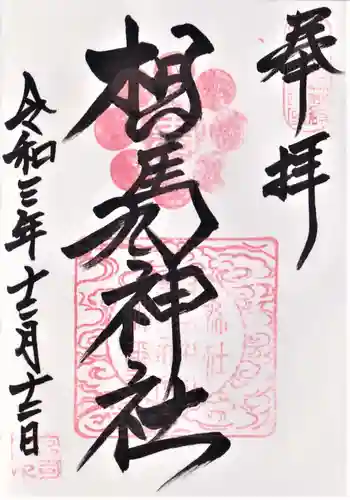 奉拝
相馬神社
令和三年十二月十二日